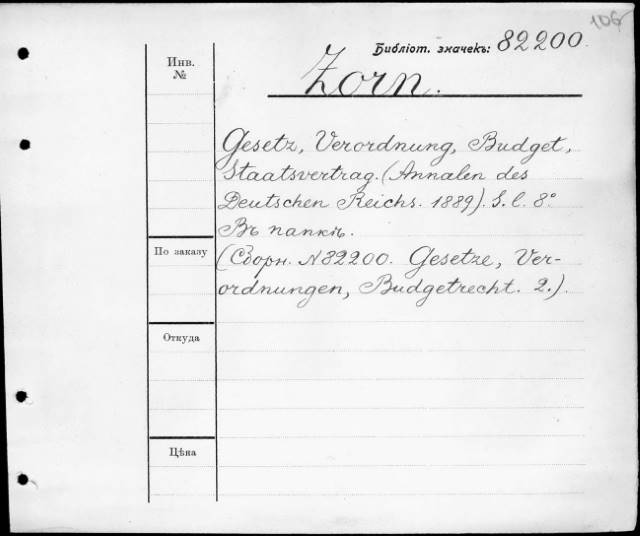 106
Библіот. значекъ: 82200
Инв.
№
Zorn.
Gesetz, Verordnung, Budget,
Staatsvertrag. (Annalen des
Deutschen Reichs. 1889). S. l. 8°
Въ папкѣ.
По заказу
(Сборн. №82200. Gesetze, Ver-
ordnungen, Budgetrecht. 2.).
Откуда
Цѣна